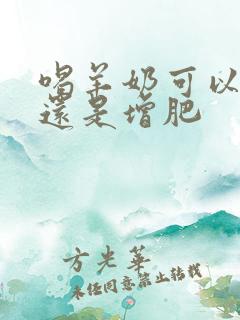 喝羊奶可以
還是增肥
方光華
未经同意禁止转载